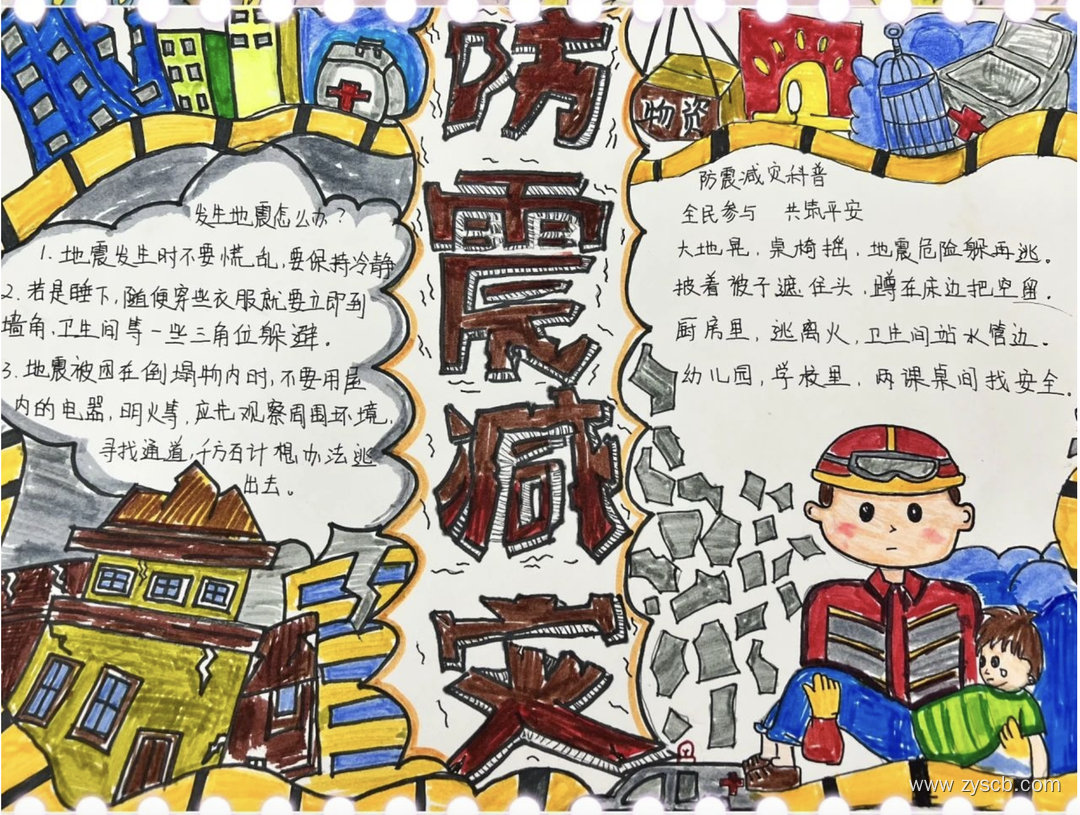 防震减灾
物资
发生地震怎么办？
1. 地震发生时不要慌乱,要保持冷静
2. 若是睡下,随便穿些衣服就要立即到
墙角,卫生间等一些三角位躲避。
3. 地震被困在倒塌物内时,不要用屋
内的电器,明火等,应先观察周围环境,
寻找通道,千方百计想办法逃
出去。
防震减灾科普
全民参与 共筑平安
大地晃，桌椅摇，地震危险躲再逃。
披着被子遮住头，蹲在床边把空留。
厨房里，逃离火，卫生间站水管边。
幼儿园，学校里，两课桌间找安全。
www.zyscb.com